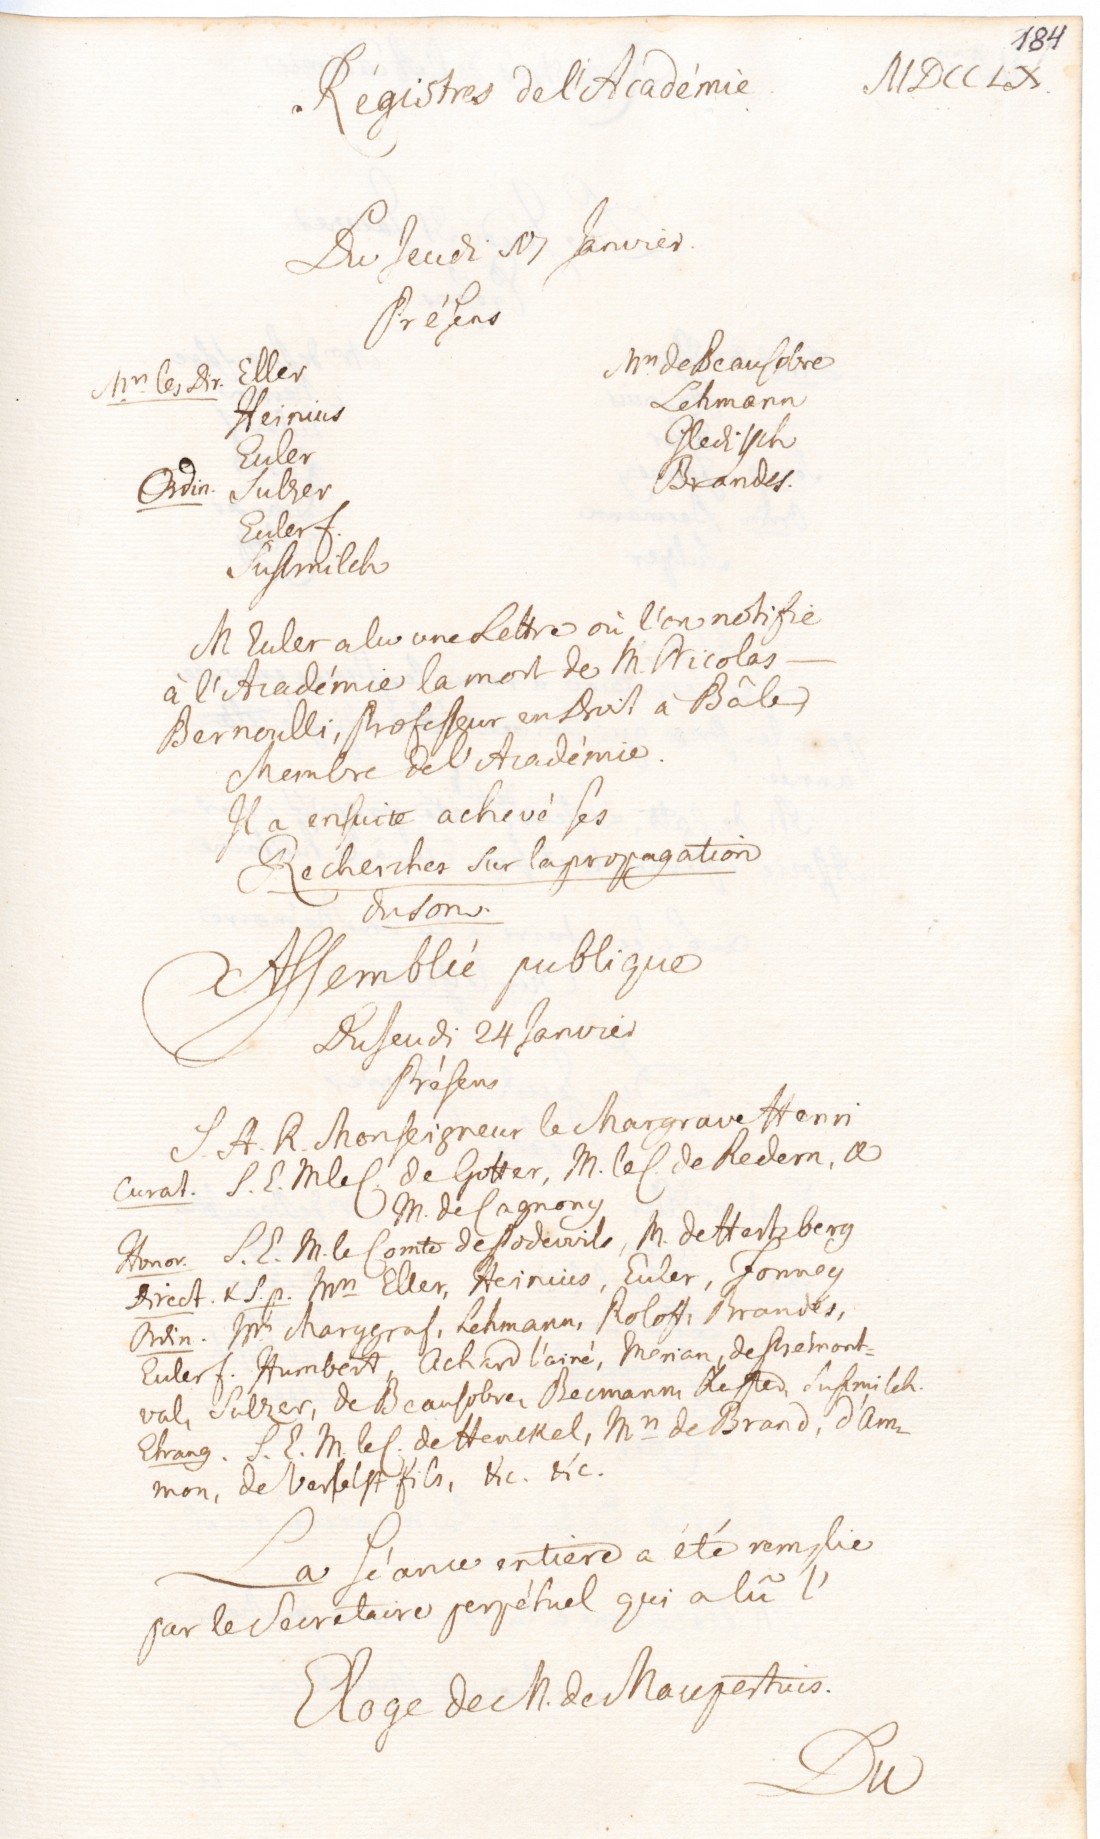 184
Régistres de l'Académie MDCCLX.
Du Jeudi 17 Janvier.
Présens
Mrs les Dir. Eller
Heinius
Euler
Ordin. Sulzer
Euler f.
Susmilch
Mrs de Beausobre
Lehmann
Gleditsch
Brandes.
M Euler a lu une Lettre où l'on notifie
à l'Académie la mort de M. Nicolas
Bernoulli, Professeur en Droit à Bâle,
Membre de l'Académie.
Il a ensuite achevé ses
Recherches sur la propagation
du son.
Assemblée publique
Du Jeudi 24 Janvier
Présens
S. A. R. Monseigneur le Margrave Henri
Curat. S. E. M le C. de Gotter, M. le C. de Redern, &
M. de Cagnony
Honor. S. E. M. le Comte de Podewils, M. de Hertzberg
Direct. & S. p. Mrs Eller, Heinius, Euler, Formey
Ordin. Mrs Marggraf, Lehmann, Roloff, Brandes,
Euler f. Humbert, Achard l'ainé, Merian, de Prémont=
val, Sulzer, de Beausobre, Becmann, Susmilch.
Etrang. S. E. M. le C. de Henckel, Mrs de Brand, d'Am=
mon, de Verelst fils, &c. &c.
La Séance entiere a été remplie
par le Secretaire perpétuel qui a lû l'
Eloge de M. de Maupertuis.
Du